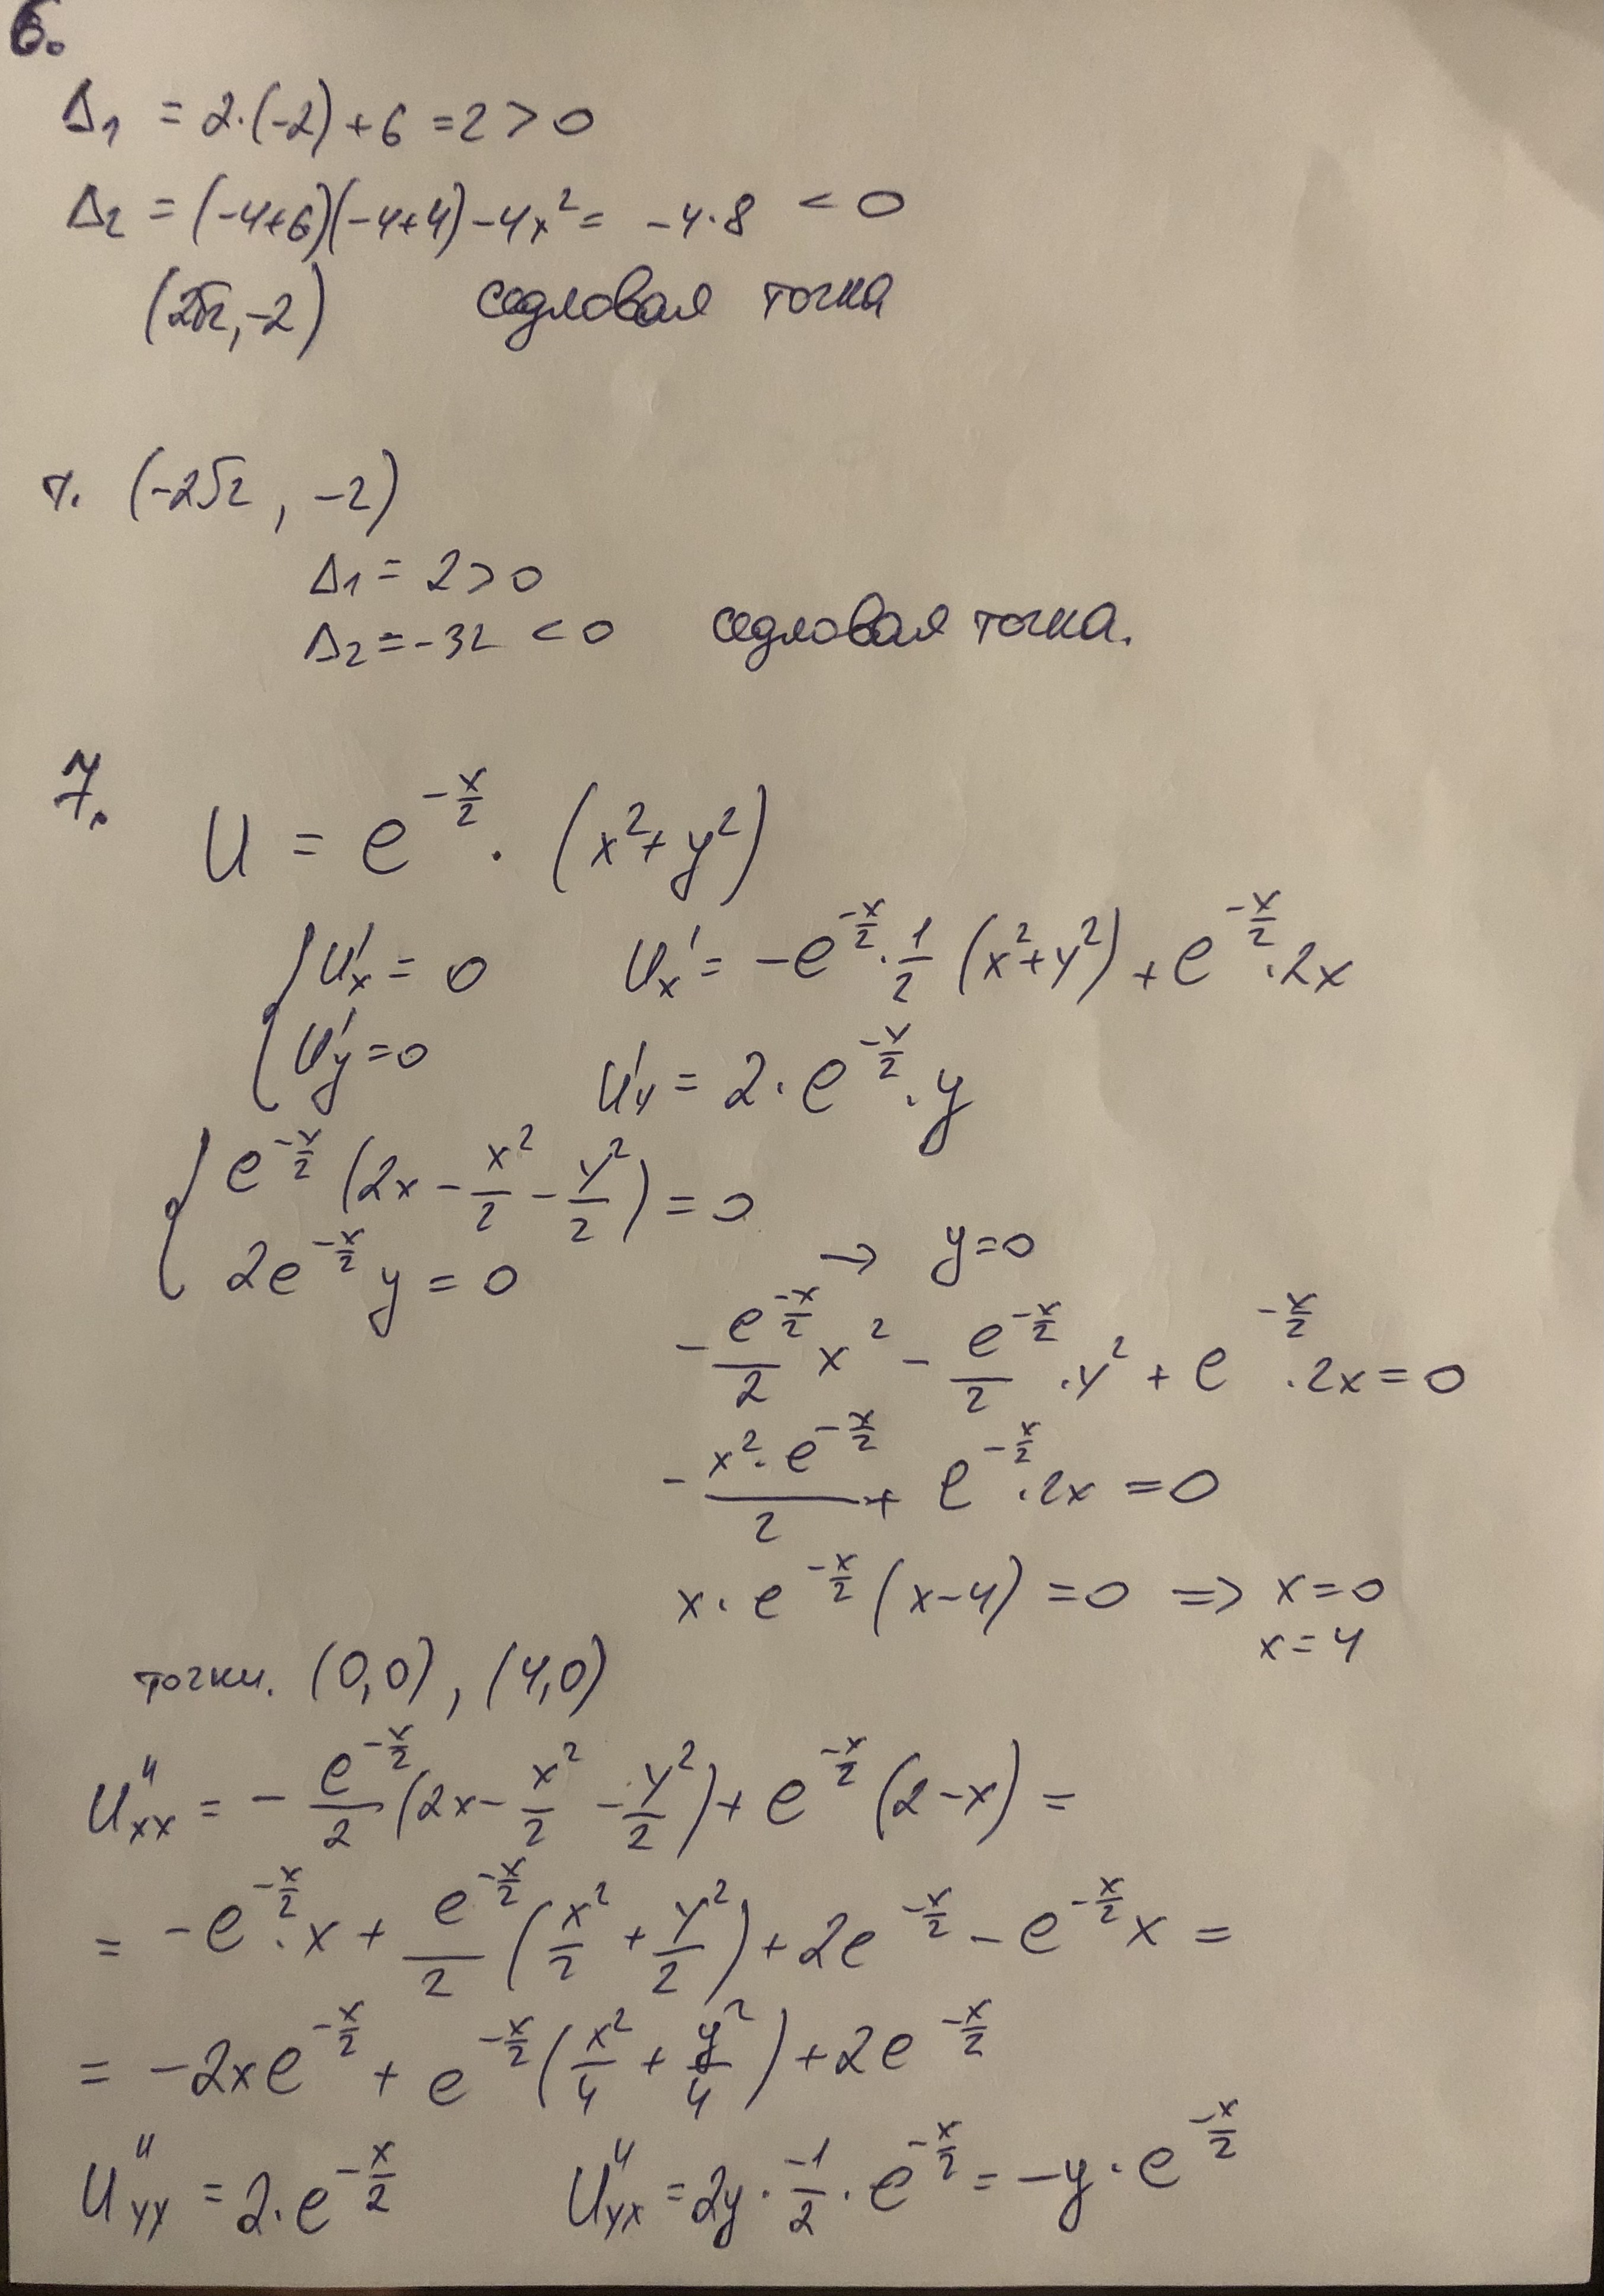 6.
Δ₁ = 2·(-2)+6 = 2 > 0
Δ₂ = (-4+6)(-4+4) - 4x² = -4·8 < 0
(2√2, -2) седловая точка
т. (-2√2, -2)
Δ₁ = 2 > 0
Δ₂ = -32 < 0 седловая точка.
7.
U = e^(-x/2) · (x²+y²)
{ U'x = 0 U'x = -e^(-x/2) · 1/2 (x²+y²) + e^(-x/2) · 2x
{ U'y = 0 U'y = 2 · e^(-x/2) · y
{ e^(-x/2) (2x - x²/2 - y²/2) = 0
{ 2e^(-x/2) y = 0 → y = 0
- e^(-x/2)/2 x² - e^(-x/2)/2 · y² + e^(-x/2) · 2x = 0
- x² · e^(-x/2)/2 + e^(-x/2) · 2x = 0
x · e^(-x/2) (x-4) = 0 => x = 0
x = 4
точки. (0,0), (4,0)
U''xx = - e^(-x/2)/2 (2x - x²/2 - y²/2) + e^(-x/2) (2-x) =
= -e^(-x/2) · x + e^(-x/2)/2 (x²/2 + y²/2) + 2e^(-x/2) - e^(-x/2) x =
= -2xe^(-x/2) + e^(-x/2) (x²/4 + y²/4) + 2e^(-x/2)
U''yy = 2 · e^(-x/2) U''yx = 2y · -1/2 · e^(-x/2) = -y · e^(-x/2)